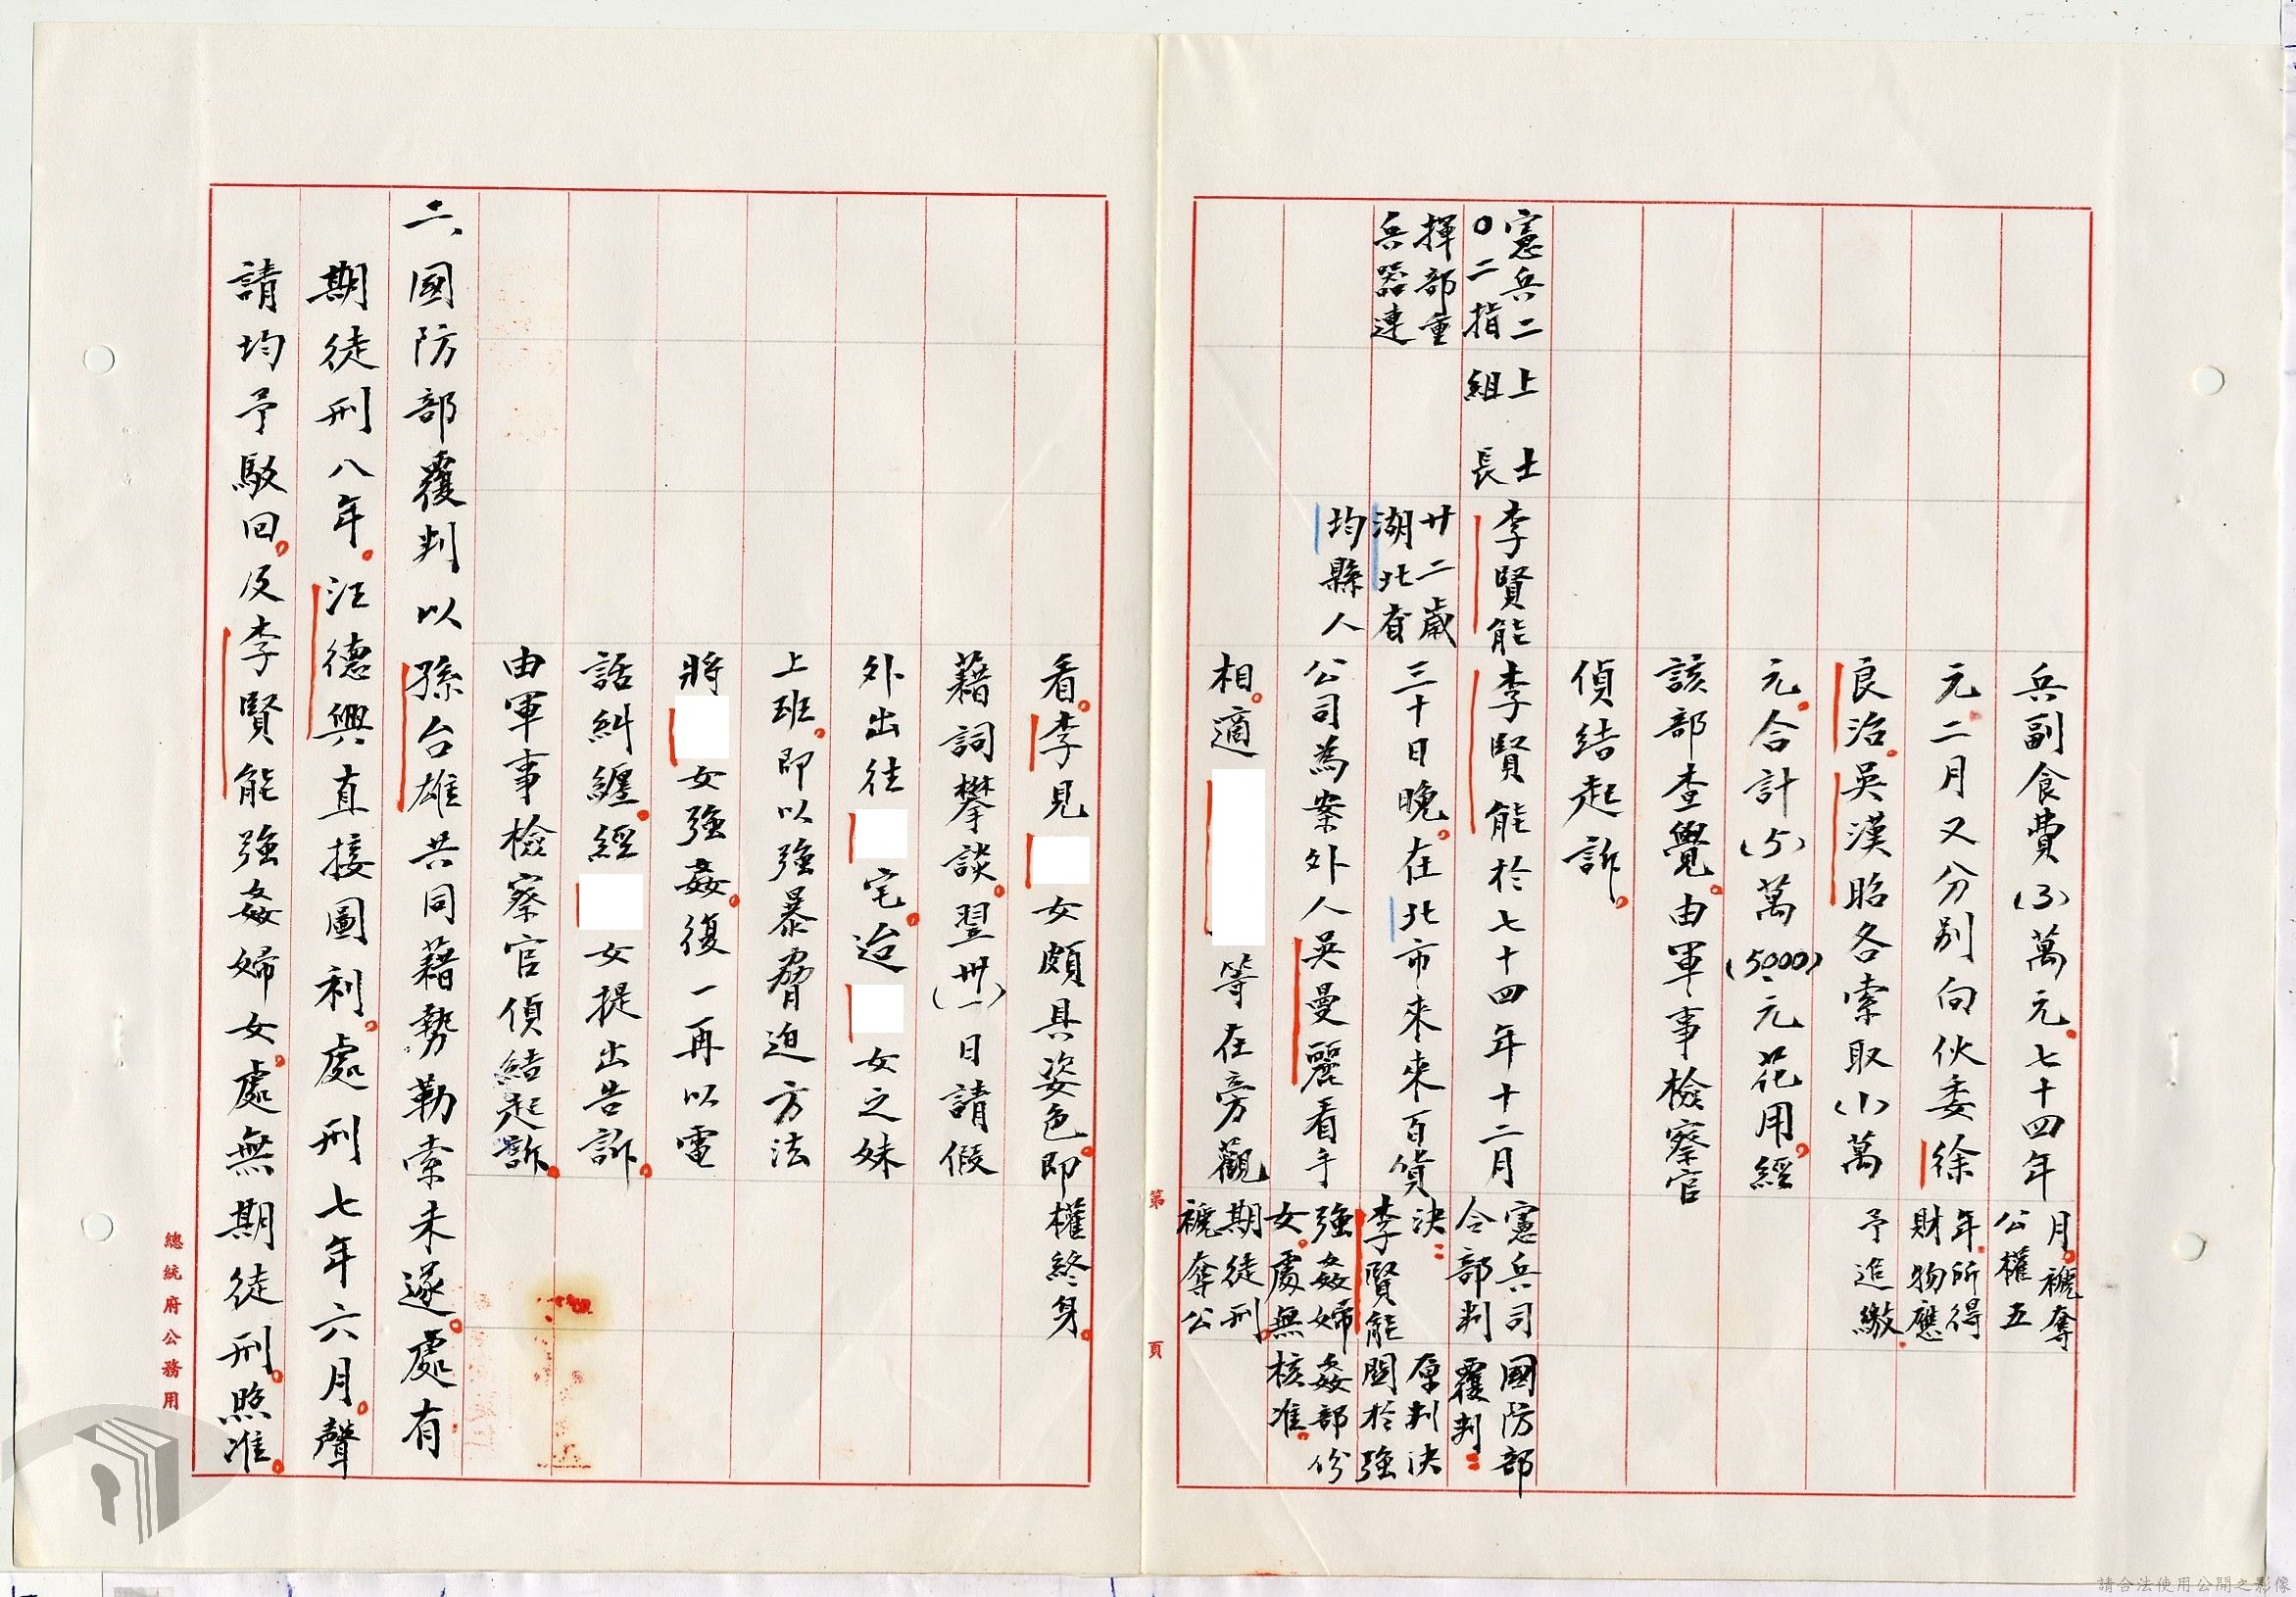 兵副食費(3)萬元。七十四年
元二月又分別向伙委徐
良治。吳漢昭各索取(1)萬
元。合計(5)萬(5000)元花用。經
該部查覺。由軍事檢察官
偵結起訴。
月。褫奪
公權五
年。所得
財物應
予追繳。
憲兵二
〇二指
揮部重
兵器連
上士
組長
李賢能
廿二歲
湖北省
均縣人
李賢能於七十四年十二月
三十日晚。在北市來來百貨
公司為案外人吳曼麗看手
相。適
等在旁觀
憲兵司
令部判
決:
李賢能
強姦婦
女。處無
期徒刑。
褫奪公
國防部
覆判:
原判決
關於強
姦部份
核准。
看。李見
女頗具姿色。即
藉詞攀談。翌(卅一)日請假
外出往
宅。迨
女之妹
上班。即以強暴脅迫方法
將
女強姦。復一再以電
話糾纏。經
女提出告訴。
由軍事檢察官偵結起訴。
權終身。
二、國防部覆判以孫台雄共同藉勢勒索未遂。處有
期徒刑八年。汪德興直接圖利。處刑七年六月。聲
請均予駁回。及李賢能強姦婦女。處無期徒刑。照准。
第 頁
總統府公務用
請合法使用公開之影像